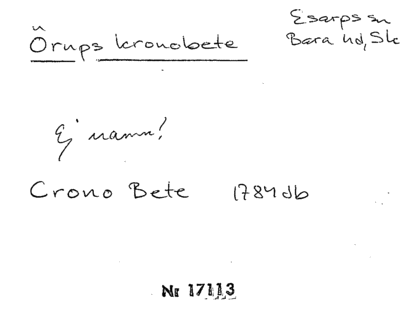 Örups kronobete
Esarps sn
Bara hd, Sk
Ej namn!
Crono Bete 1784 db
Nr 17113